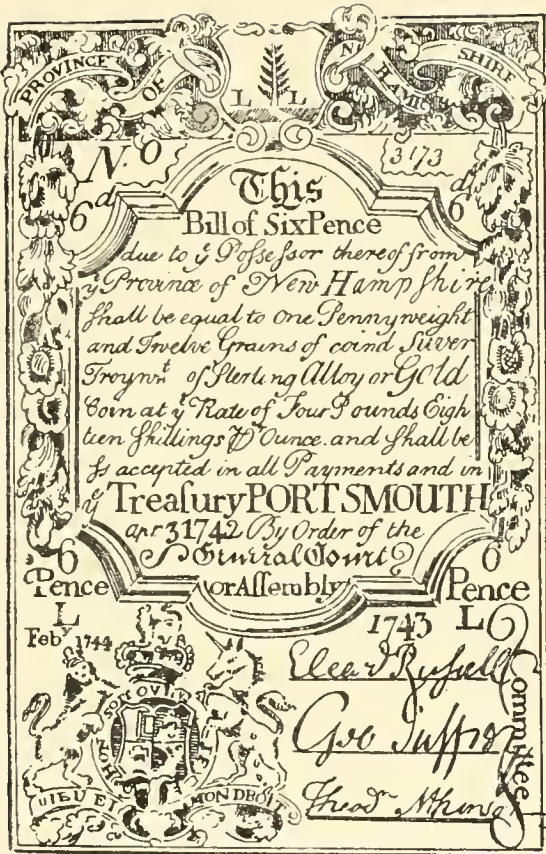 PROVINCE OF N HAMP SHIRE
L L
No 3173
6d d6
This
Bill of Six Pence
due to ye Poſseſsor thereof from
ye Province of New Hampſhire
ſhall be equal to one Pennyweight
and Twelve Grains of coind Silver
Troywt of Sterling Alloy or Gold
Coin at ye Rate of Four Pounds Eigh
teen ſhillings ⅌ Ounce. and ſhall be
ſs accepted in all Payments and in
ye Treaſury PORTSMOUTH
apr 3 1742 By Order of the
General Court
or Aſsembly
6 Pence
6 Pence
L
L
Feby 1744
1743
HONI SOIT
DIEU ET MON DROIT
Committee